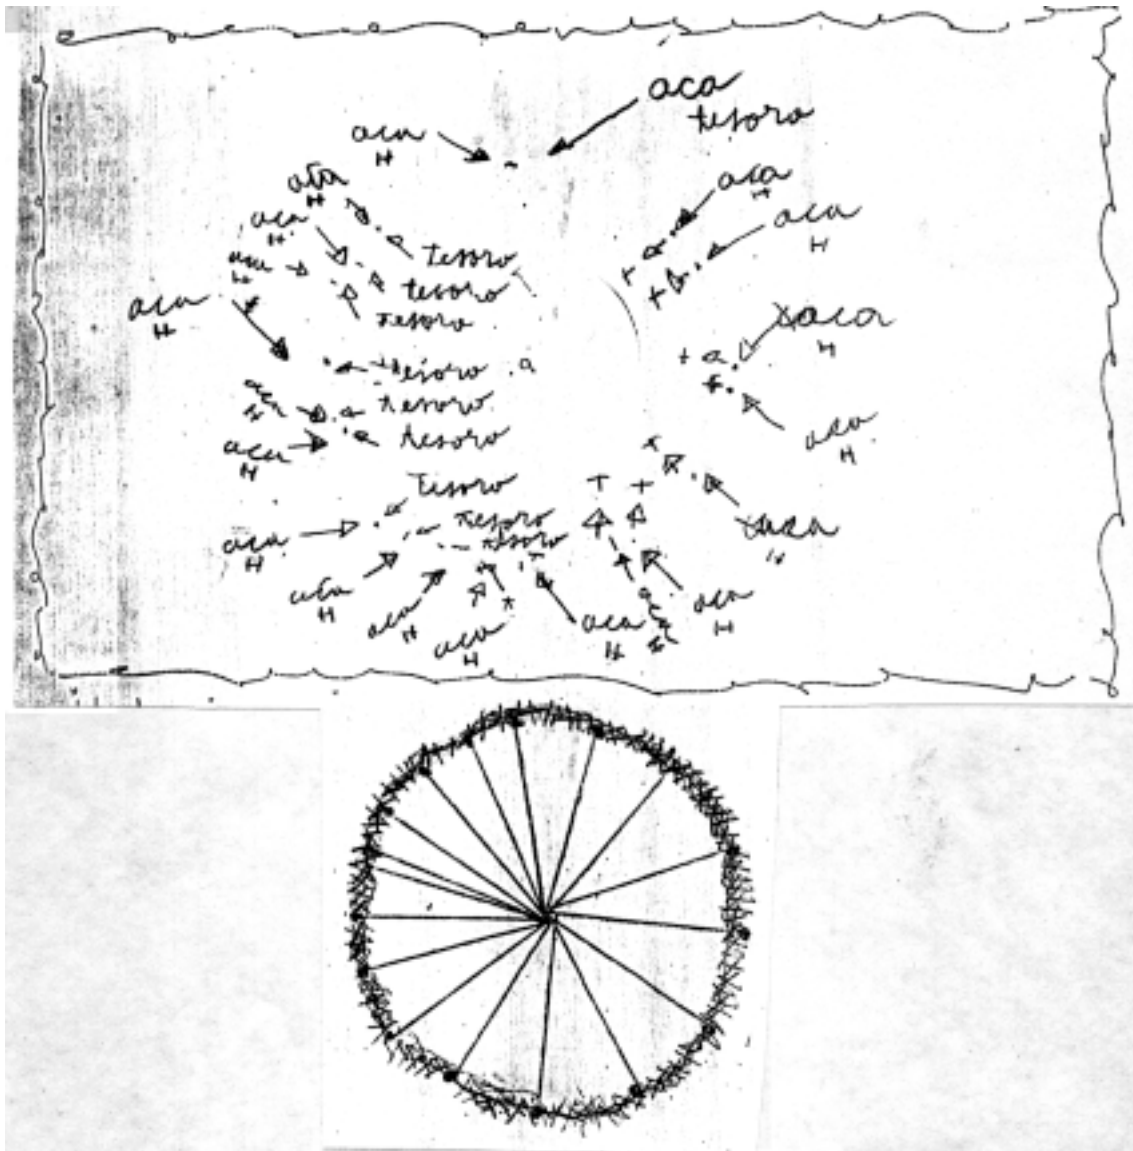 aca
tesoro
aca
H
aca
H
aca
H
aca
H
aca
H
tesoro
aca
H
tesoro
tesoro
aca
H
xaca
H
tesoro
a
aca
H
tesoro
aca
H
tesoro
aca
H
tesoro
aca
H
tesoro
tesoro
aca
H
aca
H
aca
H
aca
H
aca
H
aca
H
aca
H